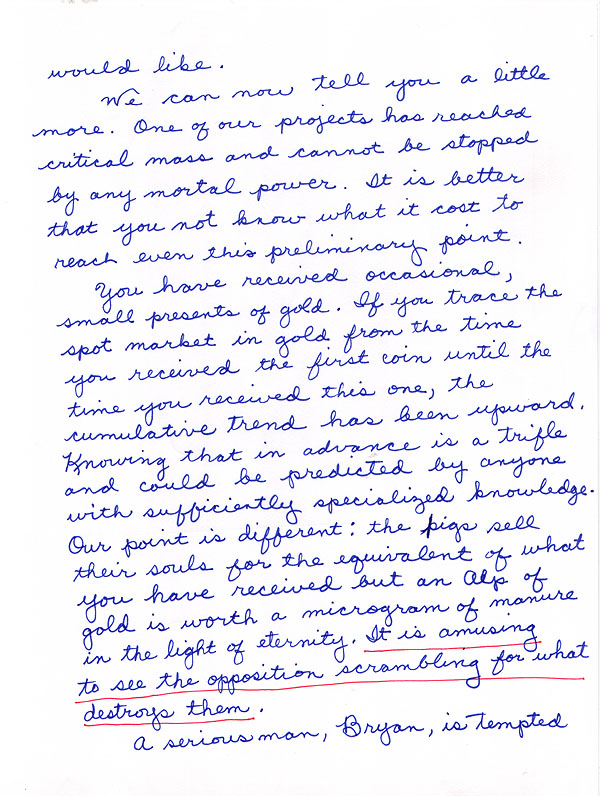 would like.
We can now tell you a little
more. One of our projects has reached
critical mass and cannot be stopped
by any mortal power. It is better
that you not know what it cost to
reach even this preliminary point.
You have received occasional,
small presents of gold. If you trace the
spot market in gold from the time
you received the first coin until the
time you received this one, the
cumulative trend has been upward.
Knowing that in advance is a trifle
and could be predicted by anyone
with sufficiently specialized knowledge.
Our point is different: the pigs sell
their souls for the equivalent of what
you have received but an Alp of
gold is worth a microgram of manure
in the light of eternity. It is amusing
to see the opposition scrambling for what
destroys them.
A serious man, Bryan, is tempted